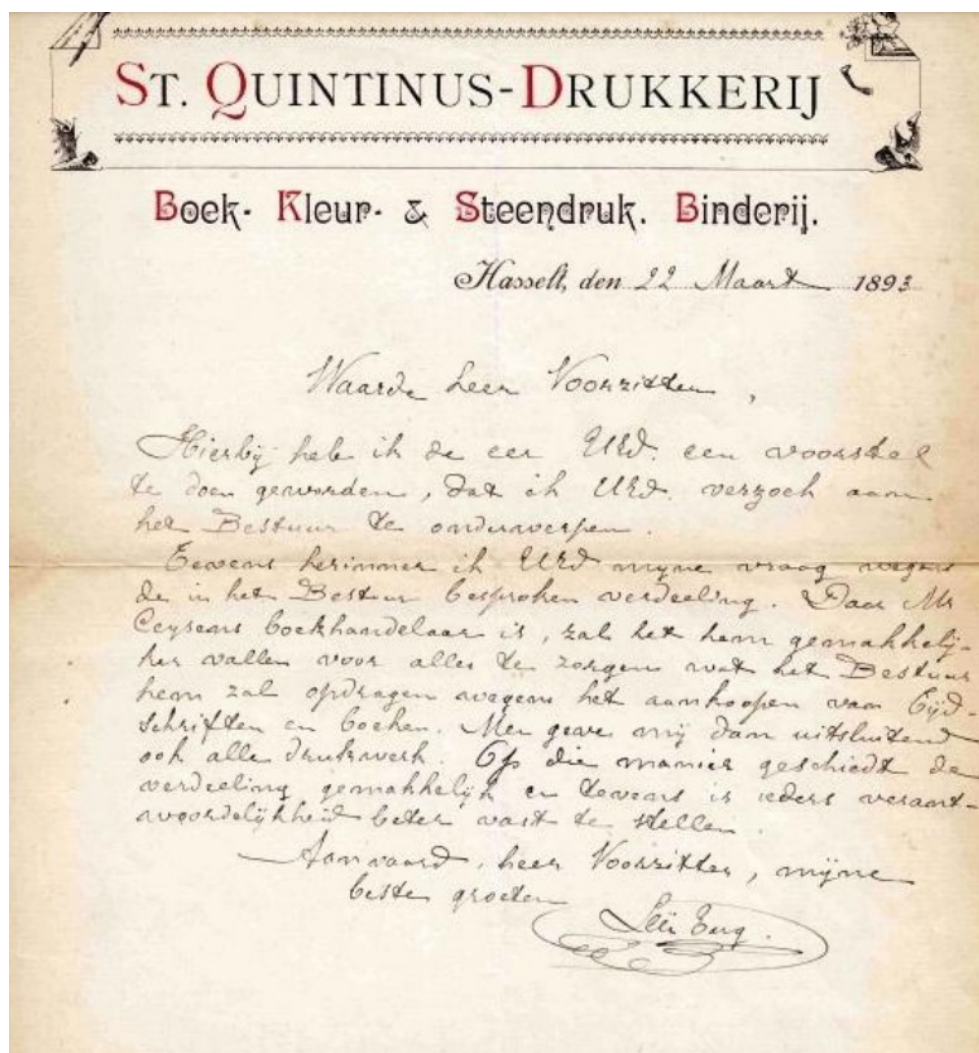 ST. QUINTINUS-DRUKKERIJ
Boek- Kleur- & Steendruk. Binderij.
Hasselt, den 22 Maart 1893
Waarde heer Voorzitter,
Hierbij heb ik de eer UEd. een voorstel
te doen geworden, dat ik UEd. verzoek aan
het Bestuur te onderwerpen.
Tevens herinner ik UEd mijne vraag wegens
de in het Bestuur besproken verdeeling. Daar Mr
Ceysens boekhandelaar is, zal het hem gemakkelij-
ker vallen voor alles te zorgen wat het Bestuur
hem zal opdragen wegens het aankoopen van tijd-
schriften en boeken. Men geve mij dan uitsluitend
ook alle drukwerk. Op die manier geschiedt de
verdeeling gemakkelijk en tevens is ieders verant-
woordelijkheid beter vast te stellen.
Aanvaard, heer Voorzitter, mijne
beste groeten